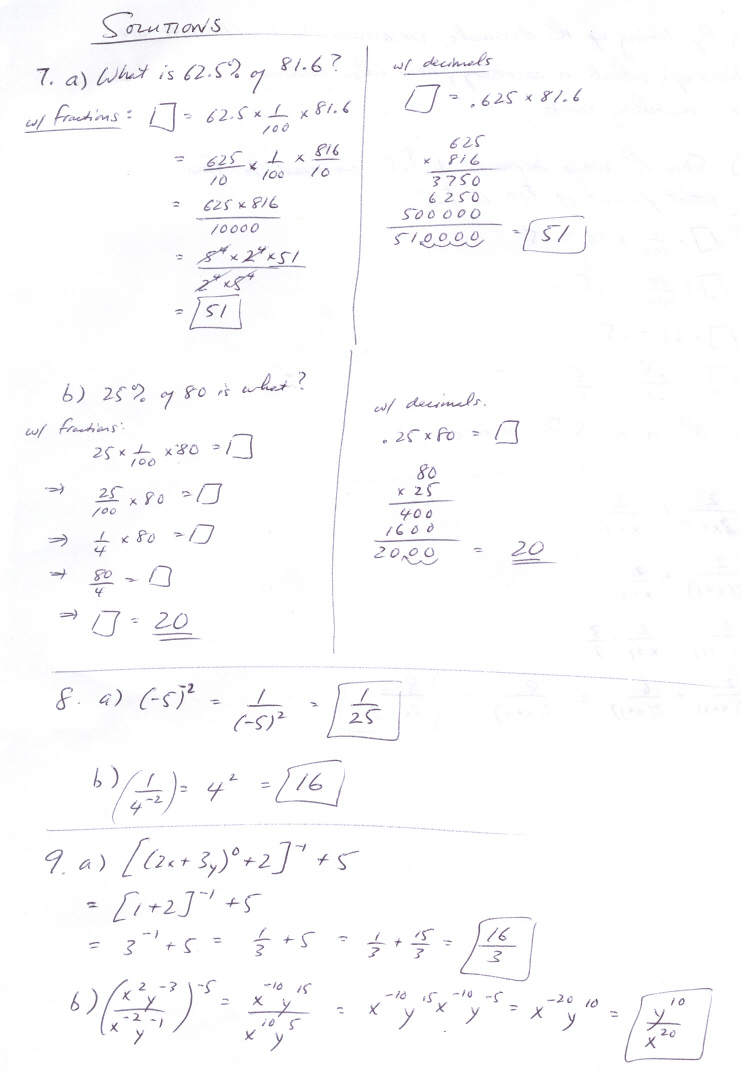 SOLUTIONS
7. a) What is 62.5% of 81.6?
w/ fractions: □ = 62.5 × 1/100 × 81.6
= 625/10 × 1/100 × 816/10
= 625 × 816 / 10000
= 5⁴ × 2⁴ × 51 / 2⁴ × 5⁴
= 51
w/ decimals
□ = .625 × 81.6
625
× 816
3750
6250
500000
510000 = 51
b) 25% of 80 is what?
w/ fractions:
25 × 1/100 × 80 = □
⇒ 25/100 × 80 = □
⇒ 1/4 × 80 = □
⇒ 80/4 = □
⇒ □ = 20
w/ decimals.
.25 × 80 = □
80
× 25
400
1600
2000 = 20
8. a) (-5)⁻² = 1/(-5)² = 1/25
b) (1/4⁻²) = 4² = 16
9. a) [(2x + 3y)⁰ + 2]⁻¹ + 5
= [1 + 2]⁻¹ + 5
= 3⁻¹ + 5 = 1/3 + 5 = 1/3 + 15/3 = 16/3
b) (x²y⁻³/x⁻²y⁻¹)⁻⁵ = x⁻¹⁰y¹⁵/x¹⁰y⁵ = x⁻¹⁰y¹⁵x⁻¹⁰y⁻⁵ = x⁻²⁰y¹⁰ = y¹⁰/x²⁰